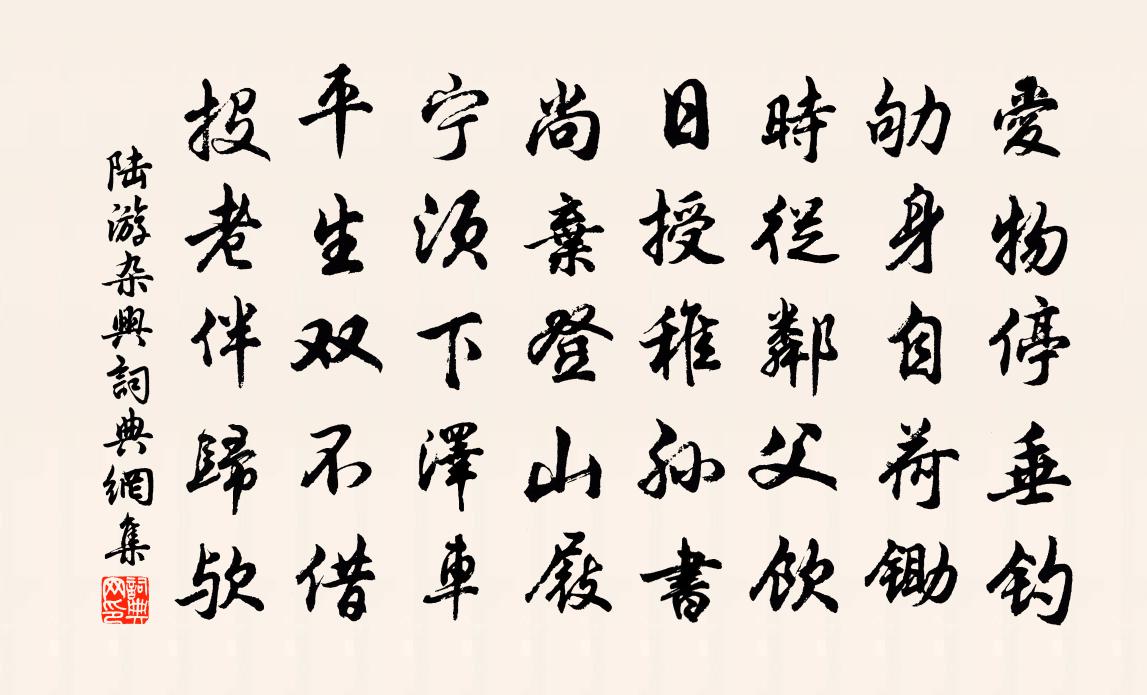 愛物停垂钓
劬身自荷锄
時從鄰父饮
日授稚孙書
尚棄登山屐
宁须下澤車
平生双不借
投老伴歸欤
陆游杂興詞典網集
詞典网印